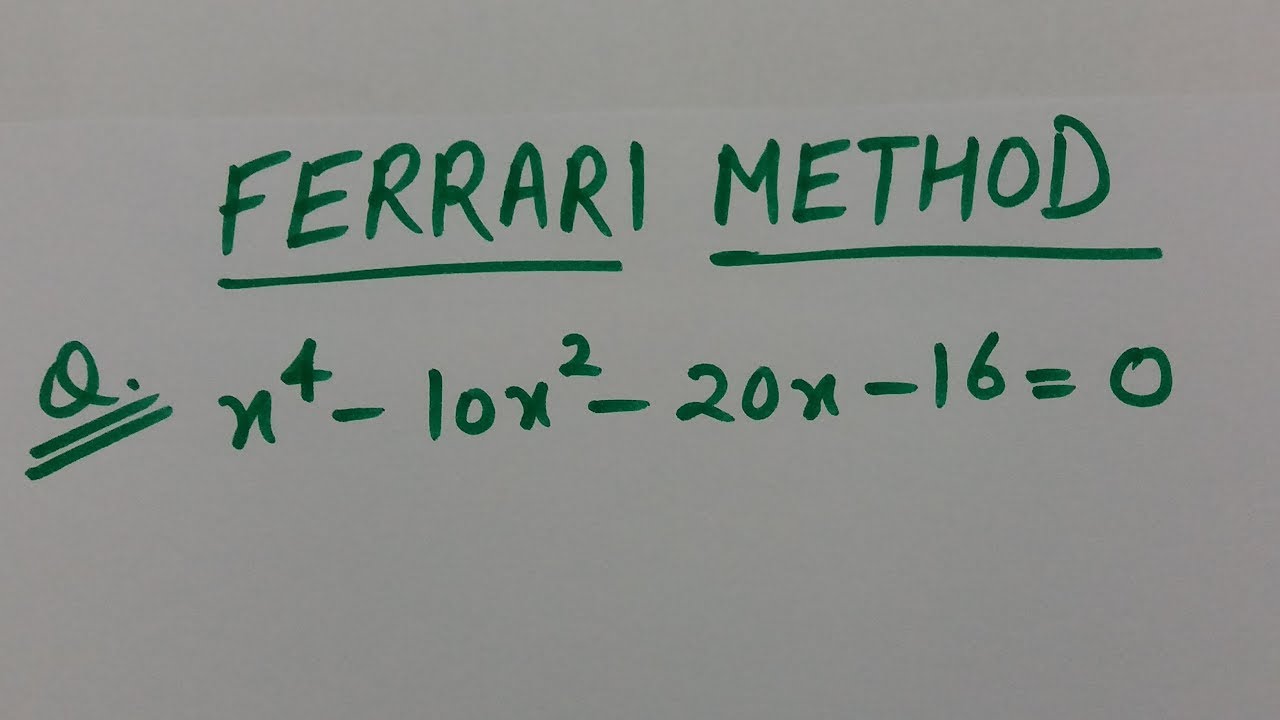 FERRARI METHOD
Q. x⁴ - 10x² - 20x - 16 = 0